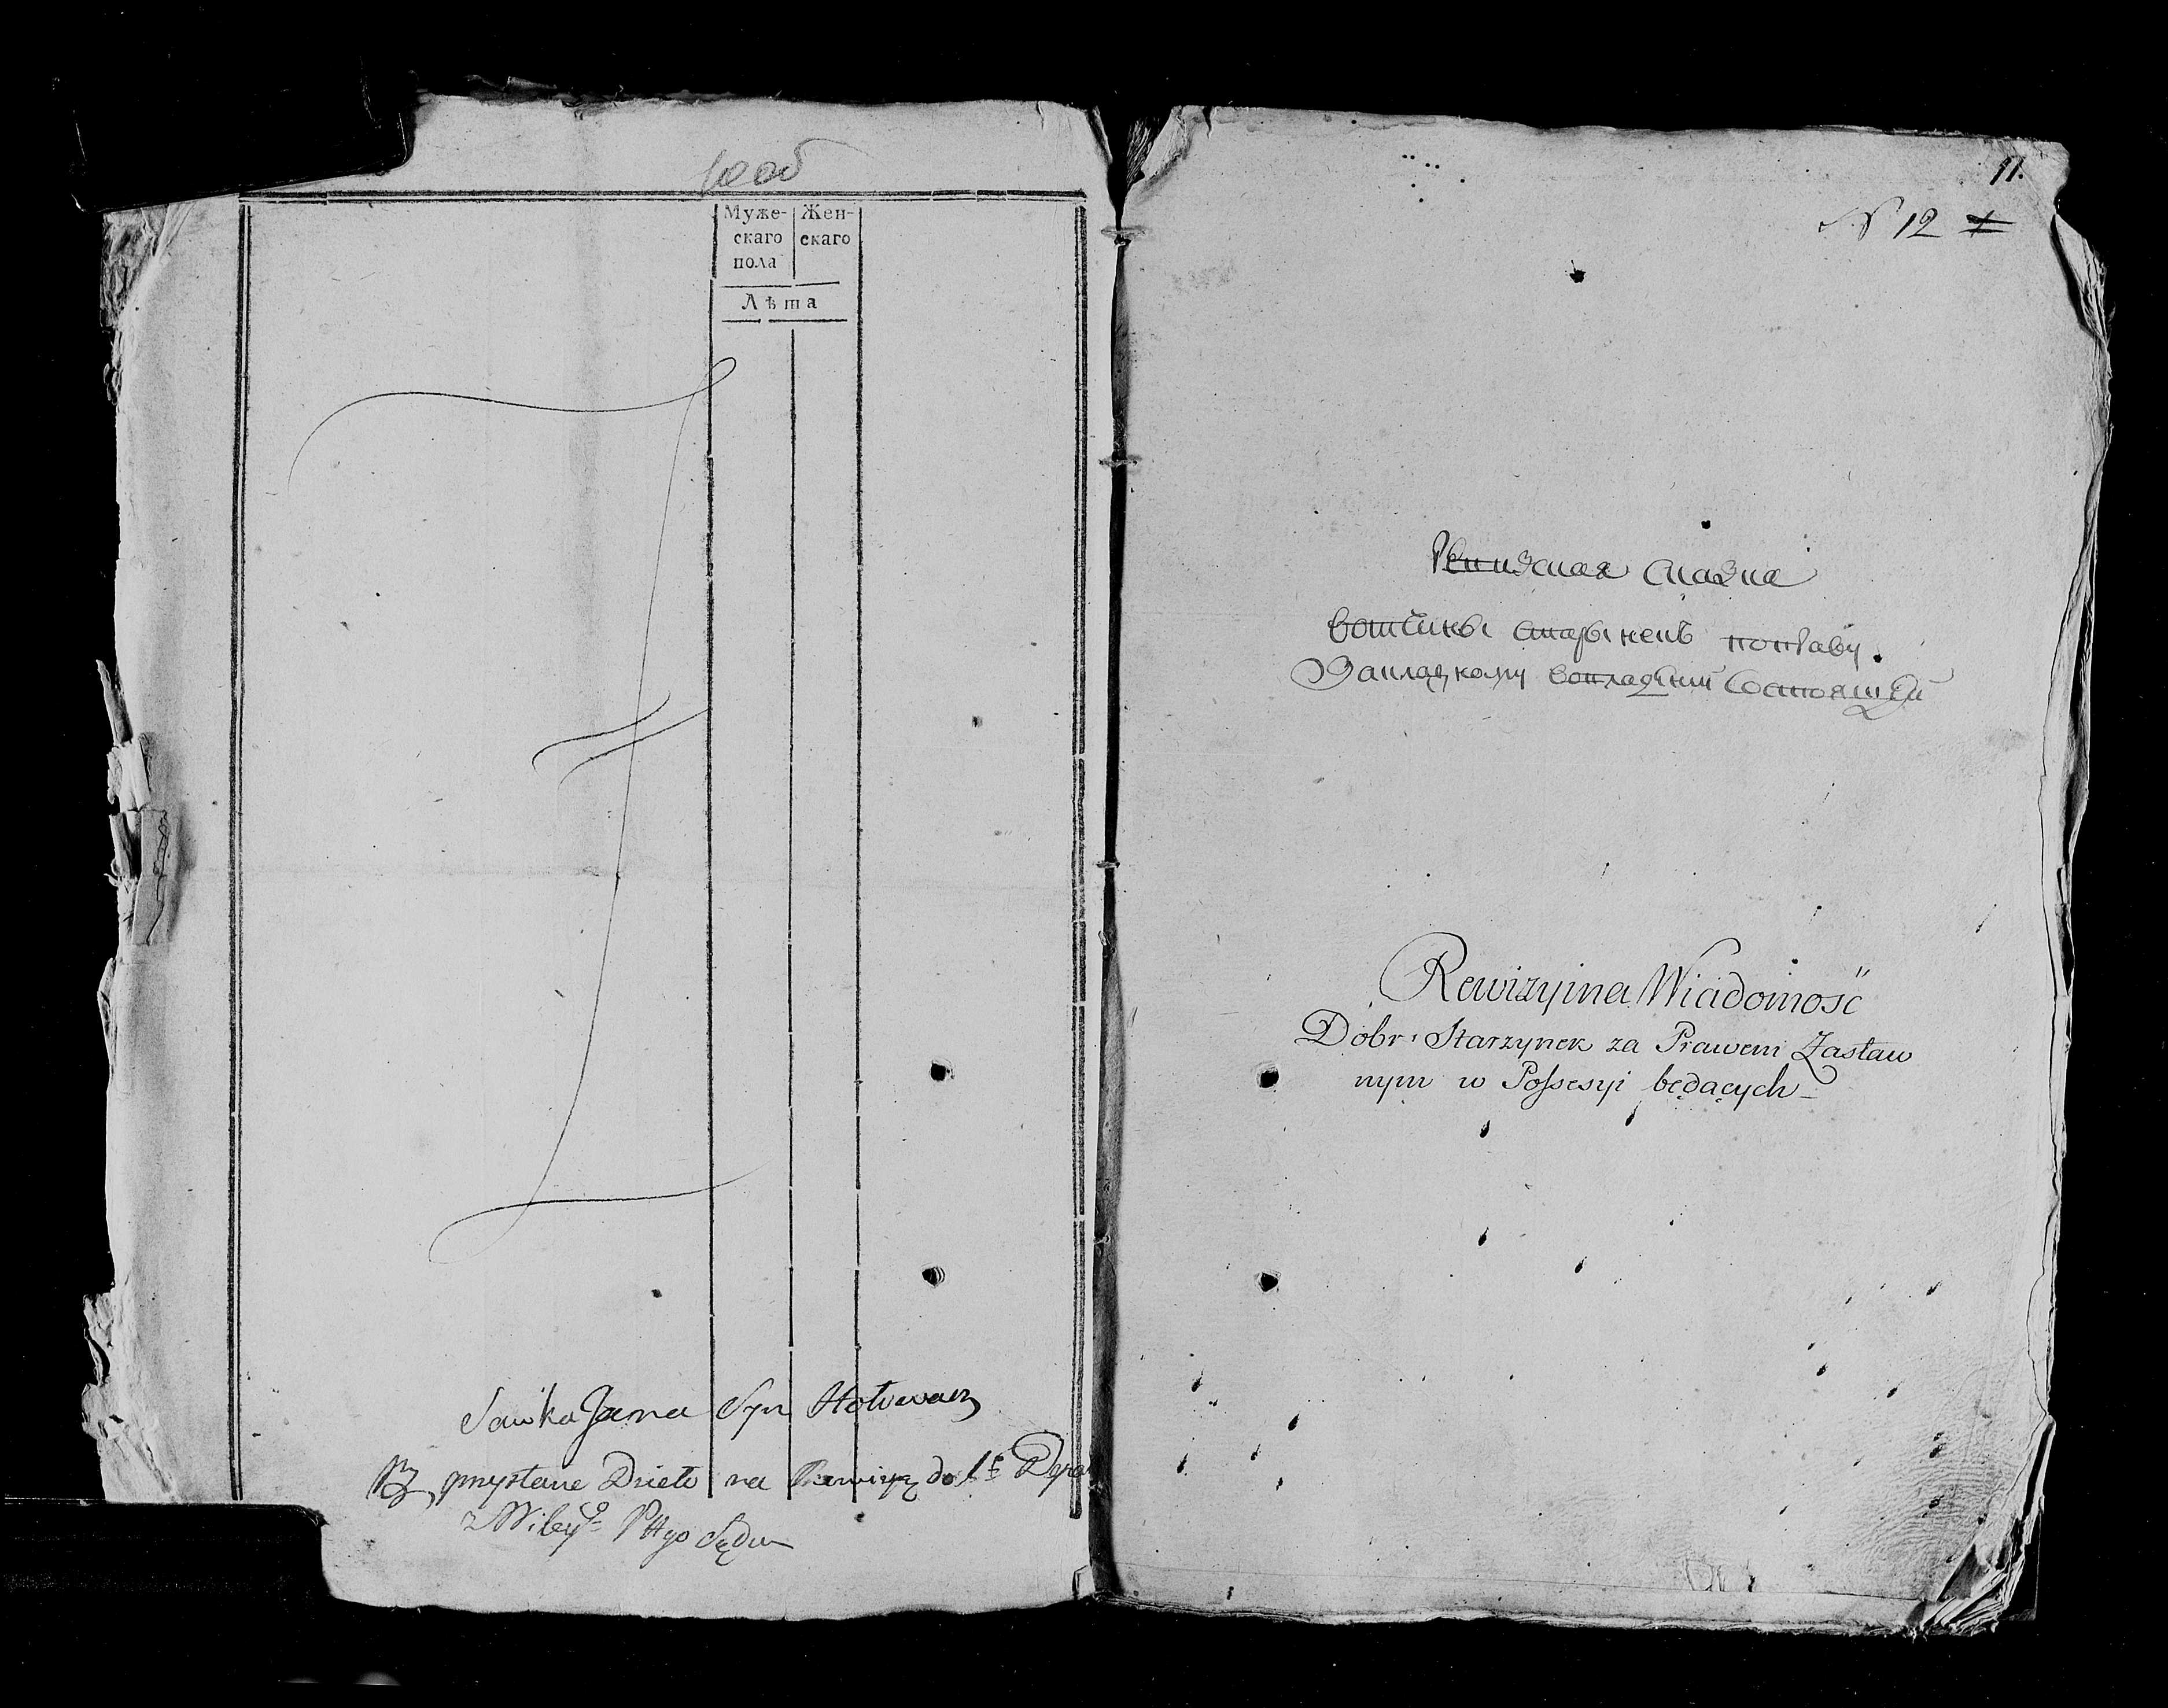 10 об
Муже- Жен-
скаго скаго
пола
Лѣта
Sawka Jana Syn
przysłane Dzieło na Rewizyą do 1º Depar
z Wiley⁰ Pttgo Sądu
11.
N 12
Ревизская Сказка
вотчины Старынекъ поправу
Закладному вовладѣнии Состоящей
Rewizyina Wiadomość
Dobr Starzynek za Prawem Zastaw
nym w Possesyi będących